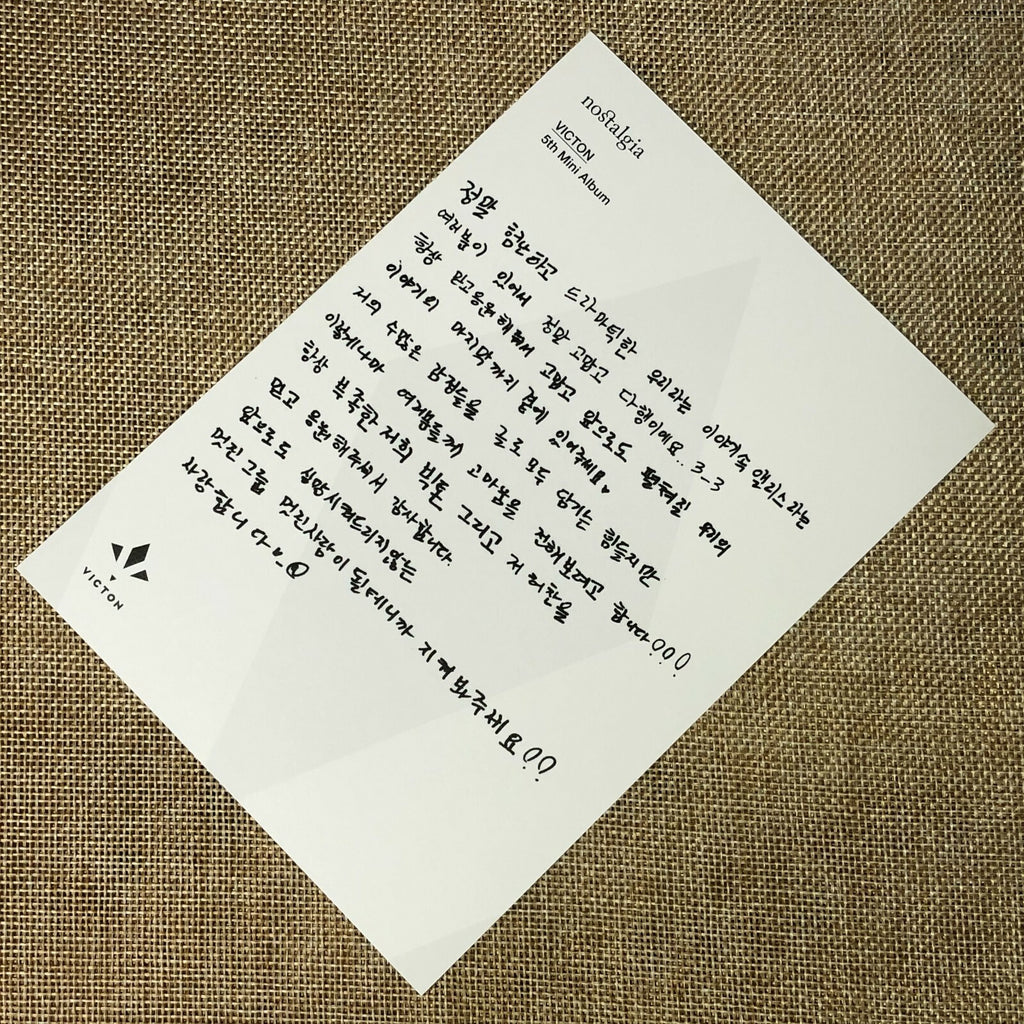 nostalgia
VICTON
5th Mini Album
정말 험난하고 드라마틱한 우리라는 이야기속 앨리스라는
여러분이 있어서 정말 고맙고 다행이에요..3_3
항상 믿고응원해줘서 고맙고 앞으로도 펼쳐질 8명의
이야기의 마지막까지 곁에 있어주세요♥
저의 수많은 감정들을 글로 모두 담기는 힘들지만
이렇게나마 여러분들께 고마움을 전해보려고 합니다!!!
항상 부족한 저희 빅톤 그리고 저 허찬을
믿고 응원해주셔서 감사합니다.
앞으로도 실망시켜드리지않는
멋진그룹 멋진사람이 될테니까 지켜봐주세요!!
사랑합니다
VICTON